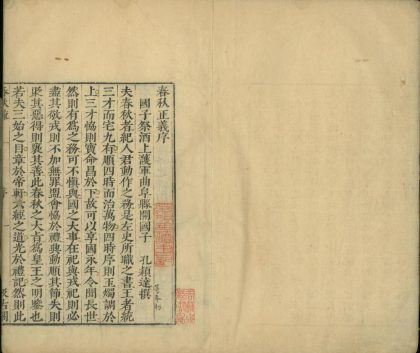 春秋正義序
國子祭酒上護軍曲阜縣開國子 孔穎達撰
夫春秋者紀人君動作之務是左史所職之書王者統
三才而宅九有順四時而治萬物四時序則玉燭調於
上三才協則寶命昌於下故可以享國永年令聞長世
然則有為之務可不慎與國之大事在祀與戎祀則必
盡其敬戎則不加無罪盟會協於禮興動順其節失則
貶其惡得則褒其善此春秋之大旨為皇王之明鑒也
若夫五始之目章於帝軒六經之道光於禮記然則此